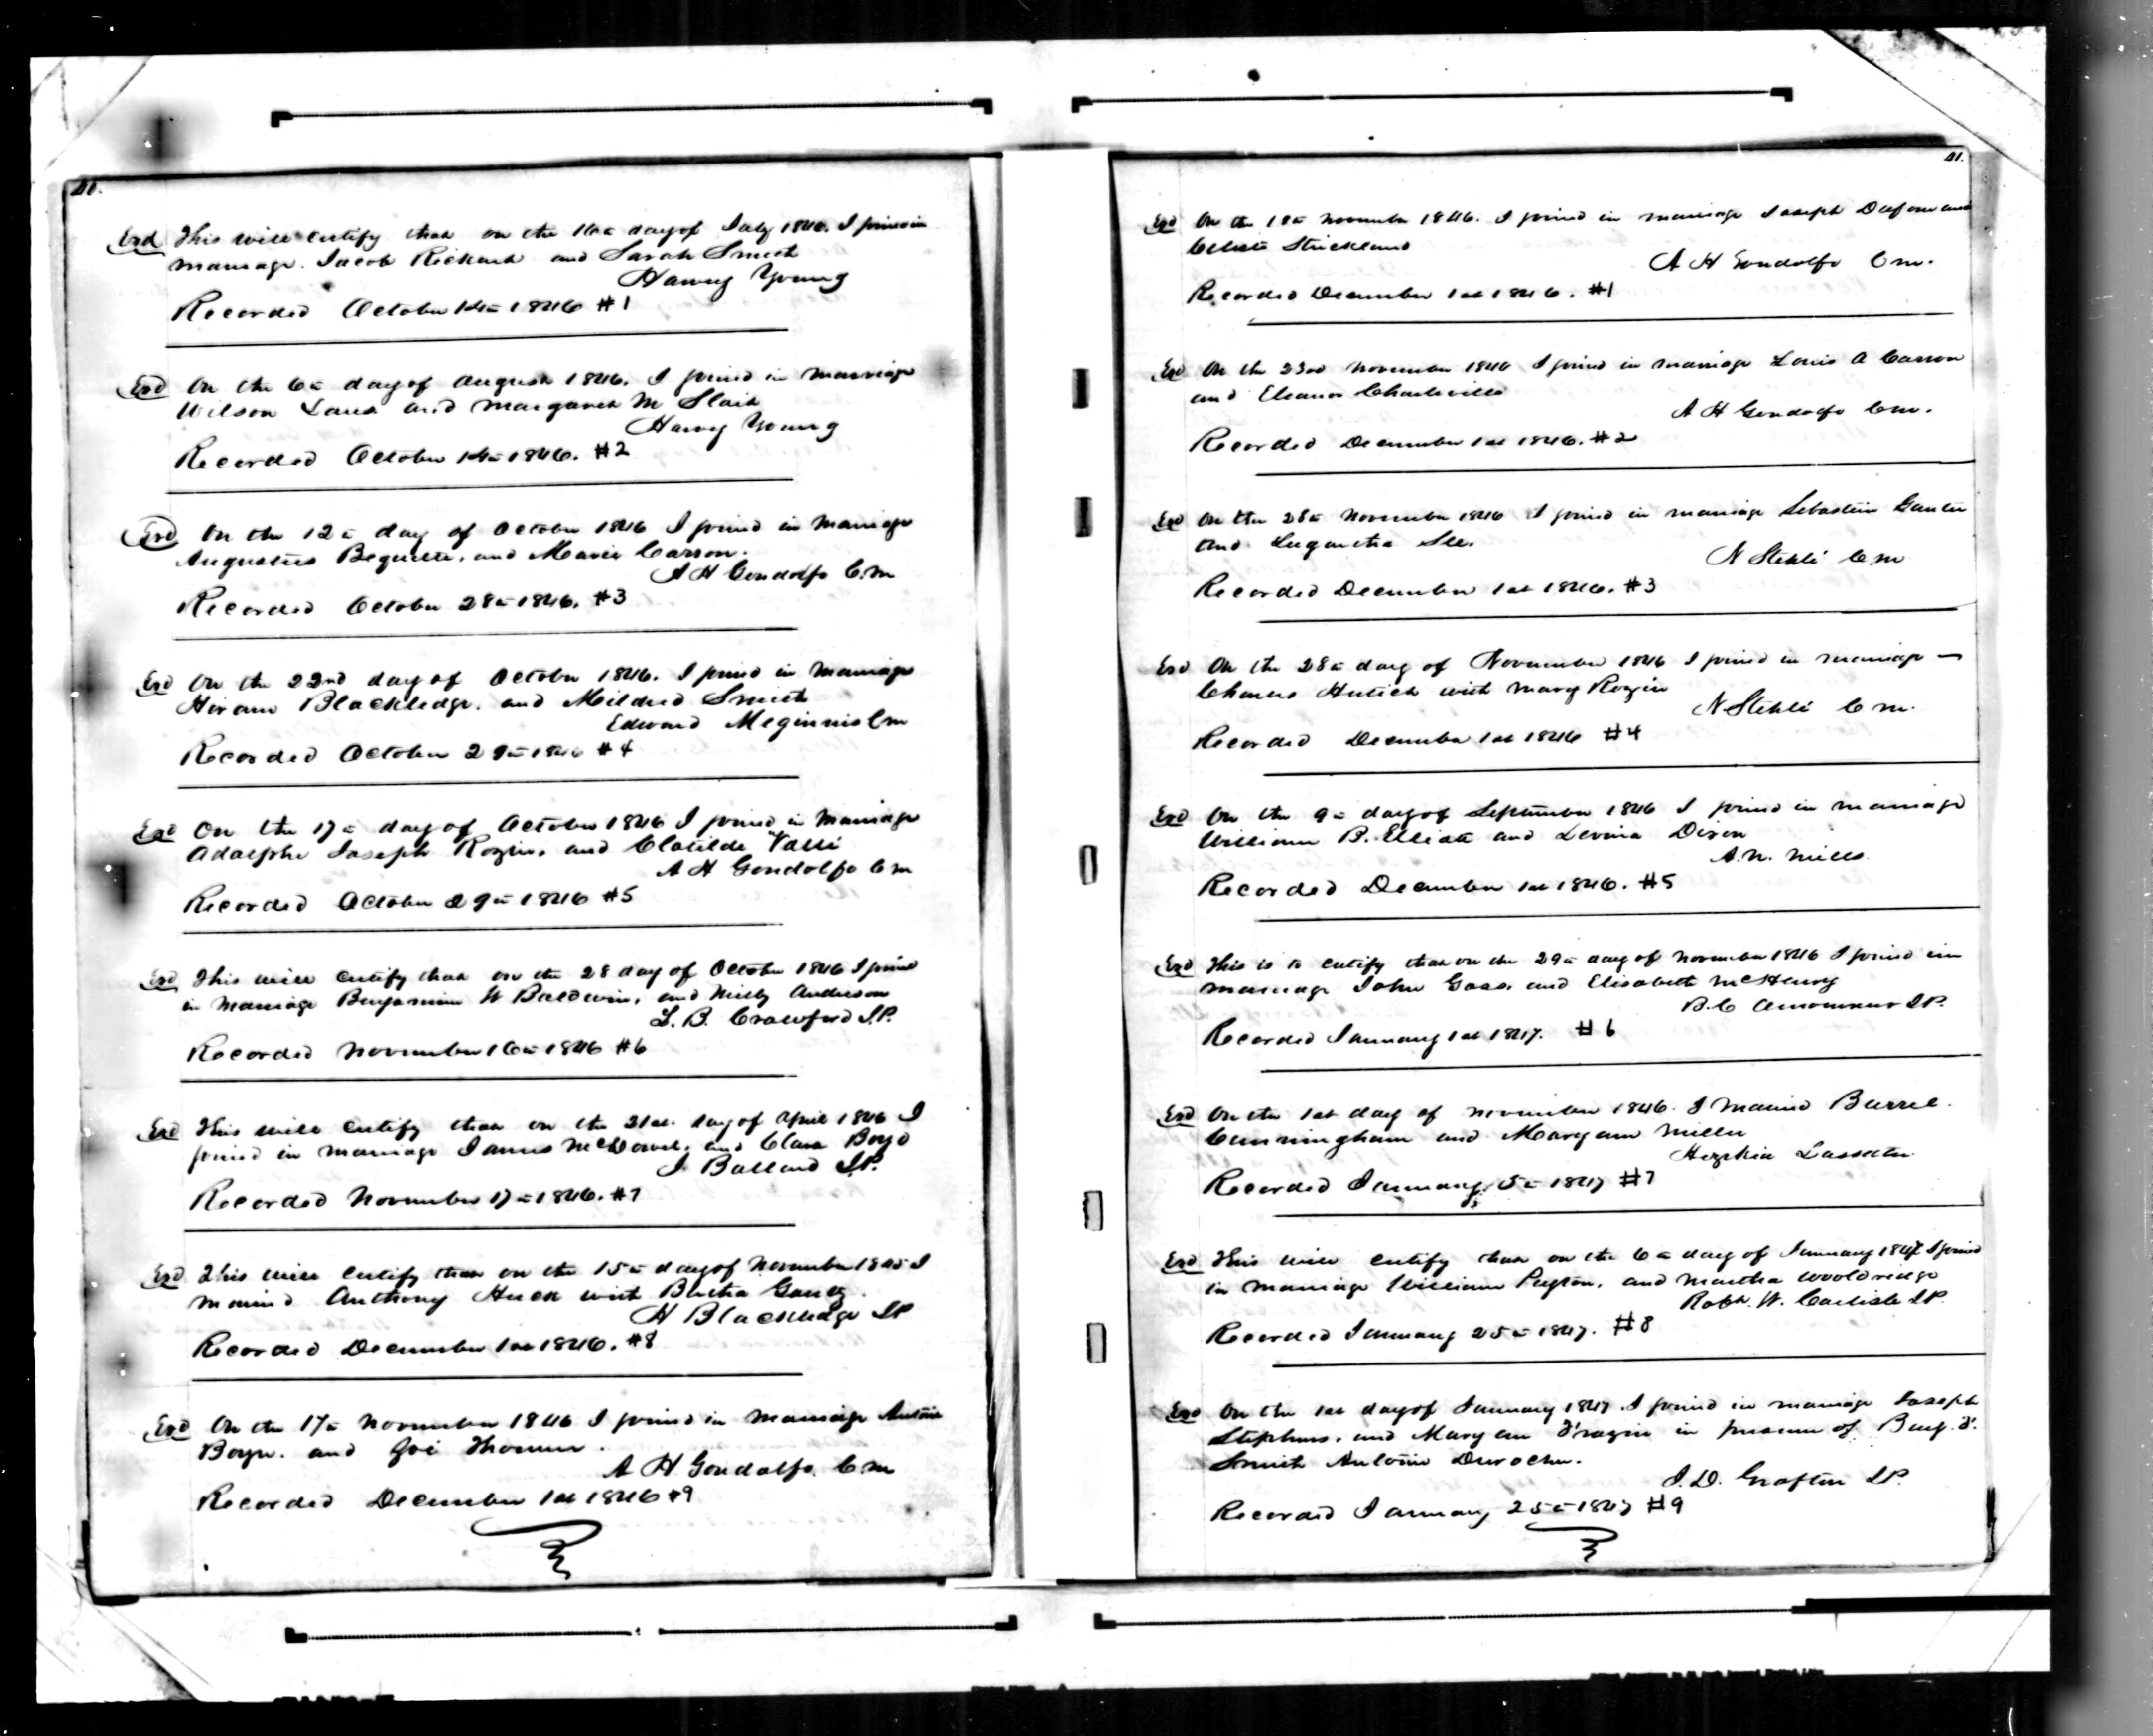 40.
Exd This will certify that on the 16th day of July 1846. I joined in
marriage. Jacob Rickard and Sarah Smith
Harvey Young
Recorded October 14th 1846 #1
Exd On the 6th day of August 1846. I joined in marriage
Wilson and Margaret M
Harvey Young
Recorded October 14th 1846. #2
Exd On the 12th day of October 1846 I joined in marriage
Augustus Bequette, and Marie Carron.
A H Gondolfo C.M
Recorded October 28th 1846. #3
Exd On the 22nd day of October 1846. I joined in marriage
Hiram Blackledge. and Mildred Smith
Edward Meginnis Cm
Recorded October 29th 1846 #4
Exd On the 17th day of October 1846 I joined in marriage
Adolphe Joseph Rozier, and Clotilde Valle
A H Gondolfo Cm
Recorded October 29th 1846 #5
Exd This will certify that on the 28 day of October 1846 I joined
in marriage Benjamin W Baldwin, and Milly Anderson
L. B. Crawford J.P.
Recorded November 16th 1846 #6
Exd This will certify that on the 21st. day of April 1846 I
joined in marriage James McDowel, and Clara Boyd
J Ballard J.P.
Recorded November 17th 1846. #7
Exd This will certify that on the 15th day of November 1845 I
married Anthony Huck with Bertha
H Blackledge JP
Recorded December 1st 1846. #8
Exd On the 17th November 1846 I joined in marriage Antoine
Boyer. and Zoe Thomure.
A H Gondolfo. Cm
Recorded December 1st 1846 #9
41.
Exd On the 18th November 1846. I joined in marriage Joseph and
Celeste Strickland
A H Gondolfo Cm.
Recorded December 1st 1846. #1
Exd On the 23rd November 1846 I joined in marriage Louis A Carron
and Eleanor Charleville
A H Gondolfo Cm.
Recorded December 1st 1846. #2
Exd On the 28th November 1846 I joined in marriage Sebastien Ganter
and See.
N Stehlé Cm
Recorded December 1st 1846. #3
Exd On the 28th day of November 1846 I joined in marriage
Charles with Mary Rozier
N Stehlé Cm.
Recorded December 1st 1846 #4
Exd On the 9th day of September 1846 I joined in marriage
William B. Elliott and Levina Dixon
A. N. Mills.
Recorded December 1st 1846. #5
Exd This is to certify that on the 29th day of November 1846 I joined in
marriage John Goss. and Elisabeth McHenry
B. C Amoureux J.P.
Recorded January 1st 1847. #6
Exd On the 1st day of November 1846. I married Burrel.
Cunningham and Maryann Miller
Hezekia Lassater.
Recorded January 5th 1847 #7
Exd This will certify that on the 6th day of January 1847 I joined
in marriage William Peyton, and Martha Wooldridge
Robt. W. Carlisle J.P.
Recorded January 25th 1847. #8
Exd On the 1st day of January 1847. I joined in marriage Joseph
Stephens. and Mary an in presence of Benj. F.
Smith Antoine Durocher.
J. D. Grafton J.P.
Recorded January 25th 1847 #9